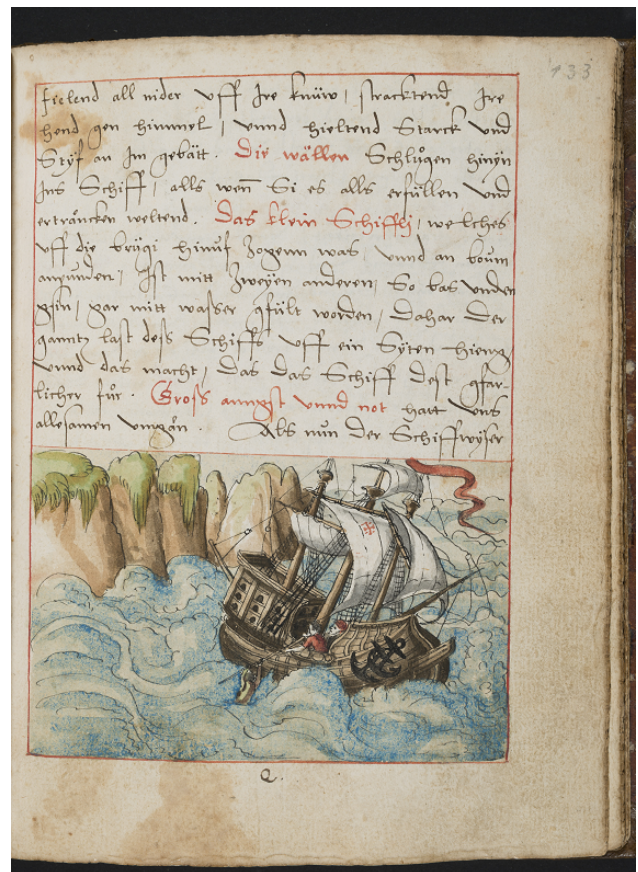 133
fielend all nider vff Ire knüw, stracktend Ire
hend gen himmel, vnnd hieltend Starck vnd
Styf an Im gebätt. Die wällen Schlůgen hinyn
Ins Schiff, alls wen̄ Si es alls erfüllen vnd
erträncken weltend. Das klein Schiffli, welches
vff die brügi hinuf Zogenn was, vnnd an boum
anpunden, Ist mitt Zweyen anderen, So bas vnden
gsin, gar mitt wasser gfült worden, Dahar Der
ganntz last dess Schiffs vff ein Syten hieng
vnnd das macht, Das das Schiff dest gfar-
licher fůr. Gross anngst vnnd not hatt vns
allesamen vmgän. Als nun Der Schiffwyser
Q.